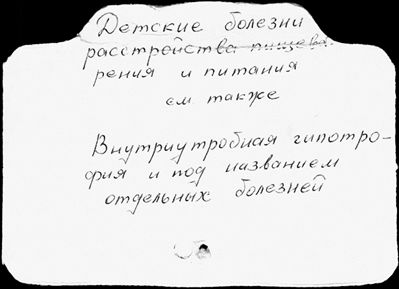 Детские болезни
расстройства пищева-
рения и питания
см также
Внутриутробная гипотро-
фия и под названием
отдельных болезней